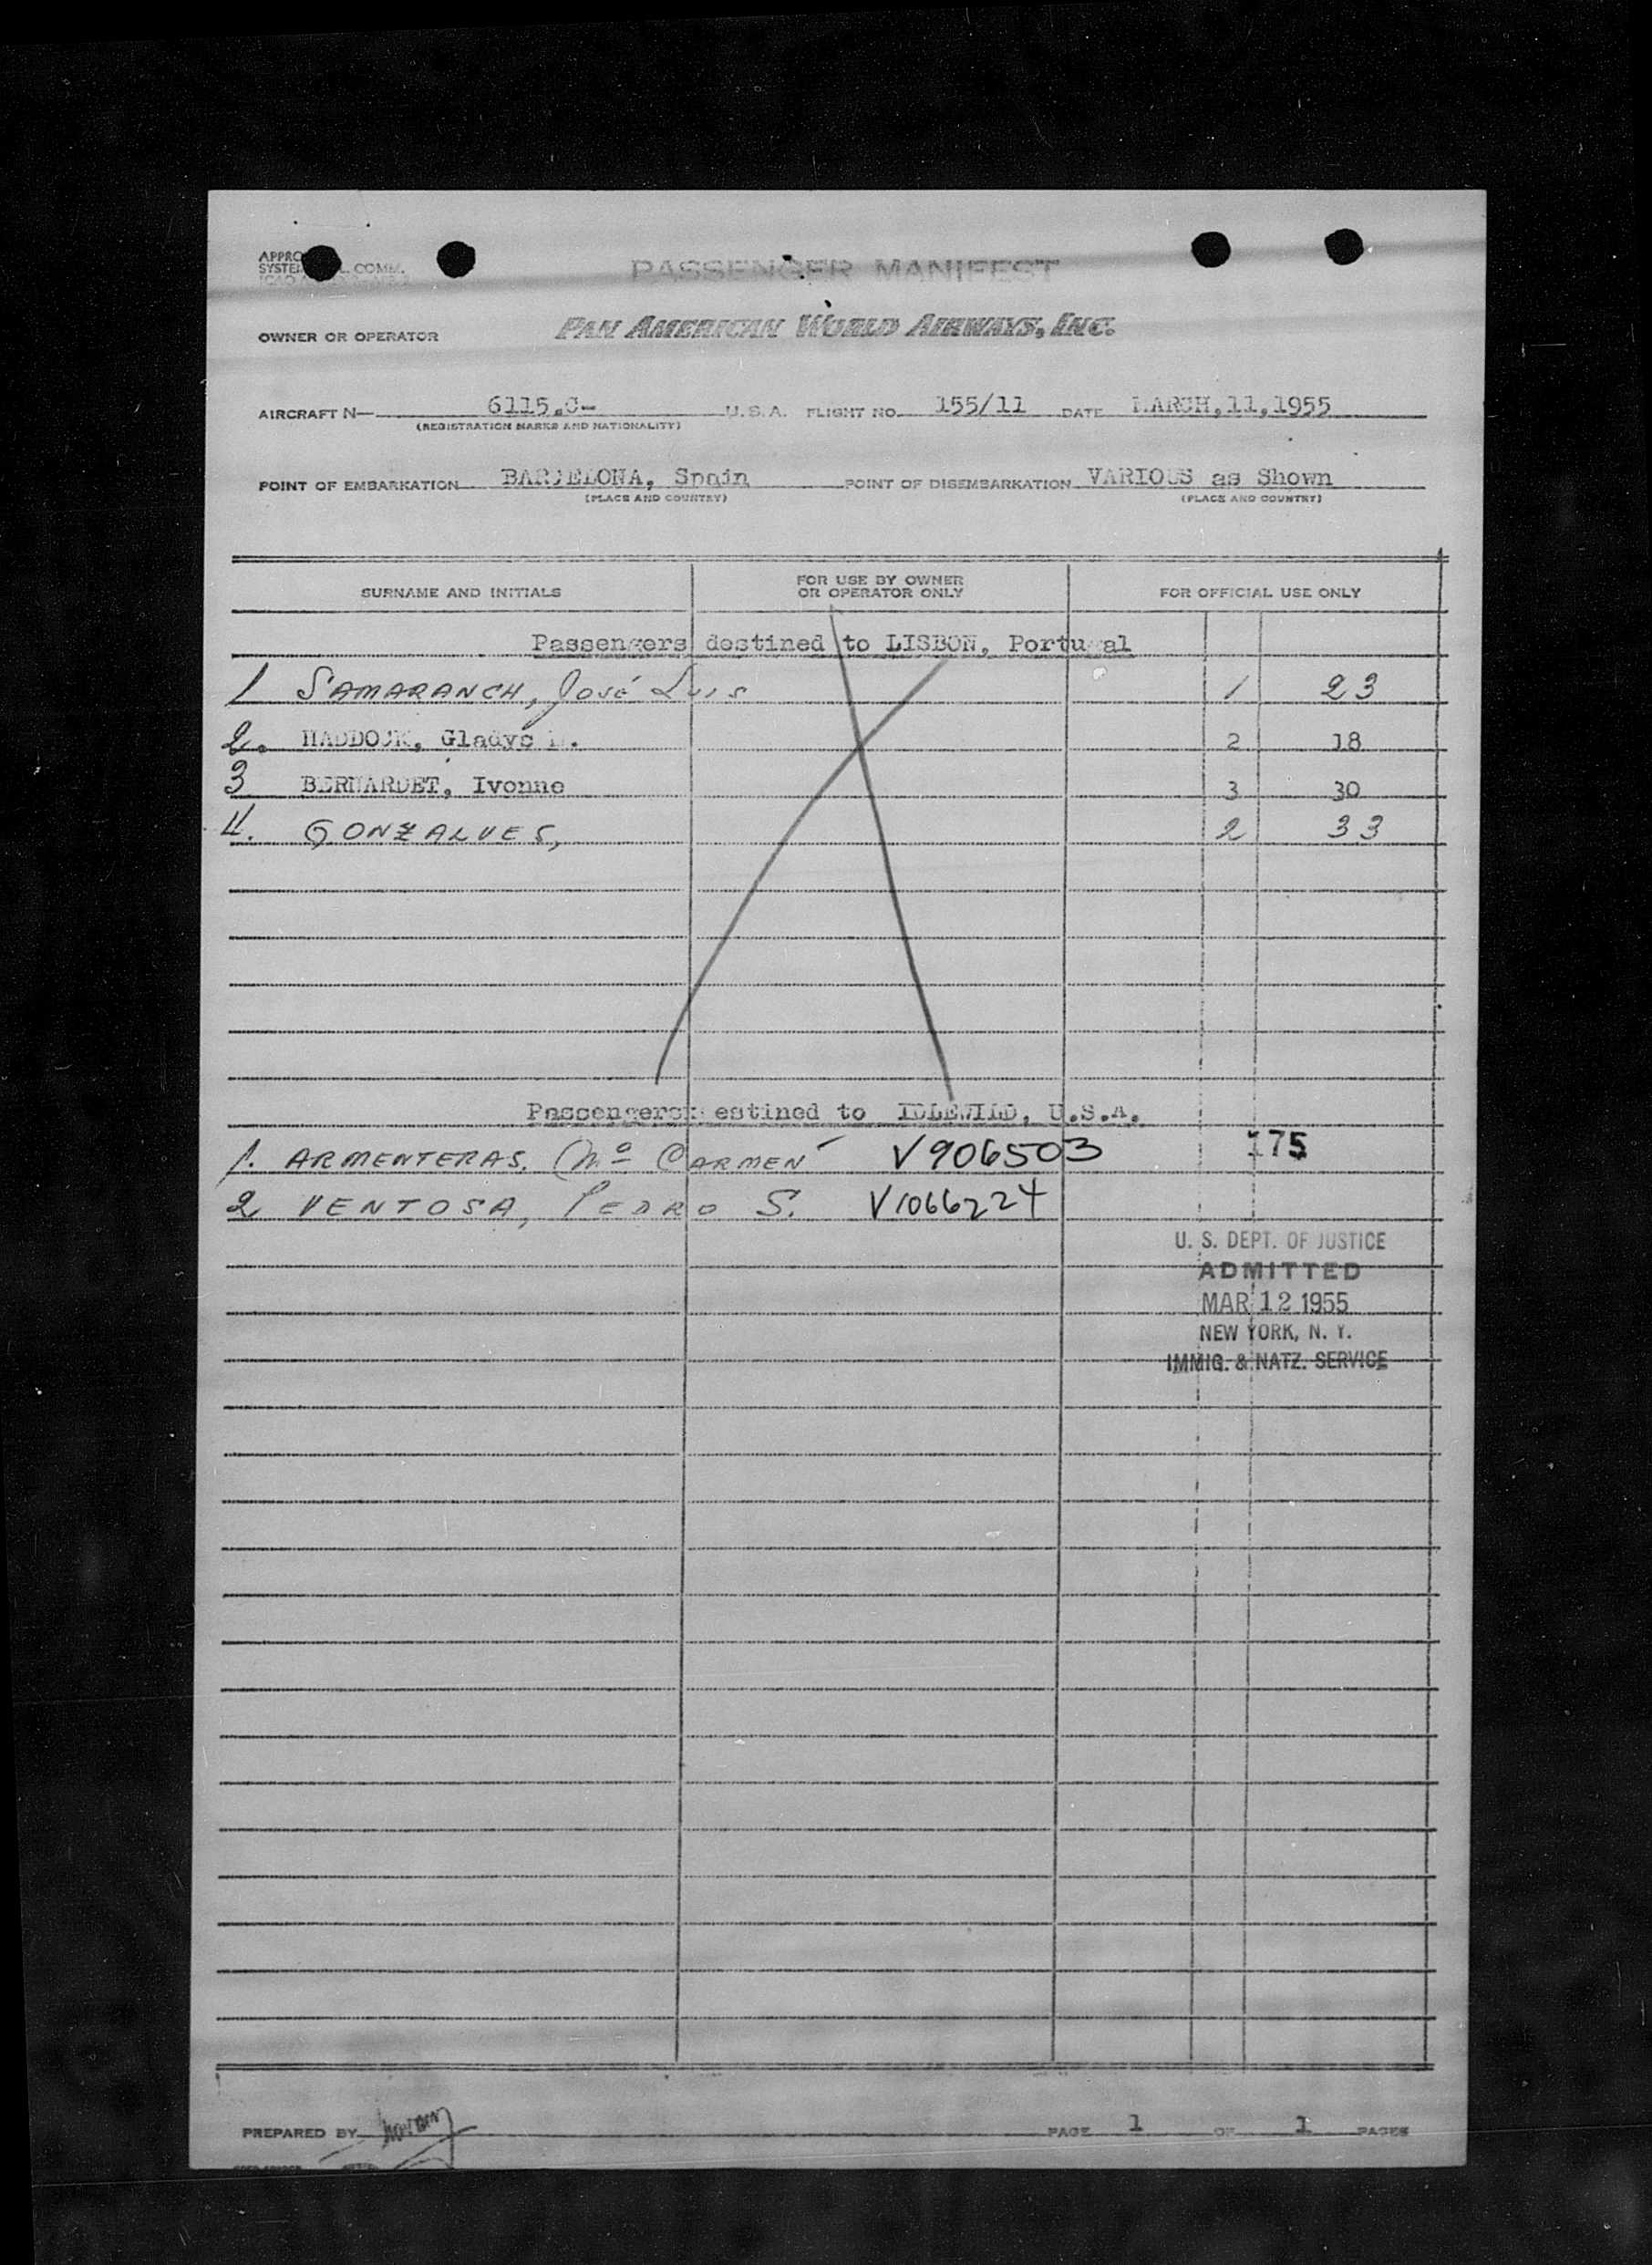 APPRO
SYSTEM L. COMM.
PASSENGER MANIFEST
OWNER OR OPERATOR PAN AMERICAN WORLD AIRWAYS, INC.
AIRCRAFT N— 6115.C- U.S.A. FLIGHT NO. 155/11 DATE MARCH,11,1955
(REGISTRATION MARKS AND NATIONALITY)
POINT OF EMBARKATION BARCELONA, Spain POINT OF DISEMBARKATION VARIOUS as Shown
(PLACE AND COUNTRY) (PLACE AND COUNTRY)
SURNAME AND INITIALS FOR USE BY OWNER OR OPERATOR ONLY FOR OFFICIAL USE ONLY
Passengers destined to LISBON, Portugal
1 SAMARANCH, José Luis 1 23
2. HADDOCK, Gladys 2 18
3 BERNARDET, Ivonne 3 30
4. GONZALVES, 2 33
Passengers estined to IDLEWILD, U.S.A.
1. ARMENTERAS. Mª CARMEN V906503 175
2 VENTOSA, PEDRO S. V1066224
U. S. DEPT. OF JUSTICE
ADMITTED
MAR 12 1955
NEW YORK, N. Y.
IMMIG. & NATZ. SERVICE
PREPARED BY PAGE 1 OF 1 PAGES